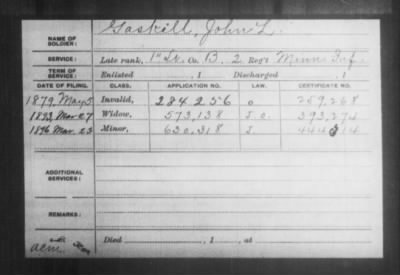 NAME OF SOLDIER: Gaskill, John L.
SERVICE: Late rank, 1" Lt. Co. B, 2 Reg't Minn Inf.
TERM OF SERVICE: Enlisted , 1 Discharged , 1
DATE OF FILING. CLASS. APPLICATION NO. LAW. CERTIFICATE NO.
1879, May 5 Invalid, 284.256 259,268
1893, Mar 27 Widow, 573,138 393,274
1896 Mar. 23 Minor, 630,318
ADDITIONAL SERVICES:
REMARKS:
Died , 1 , at